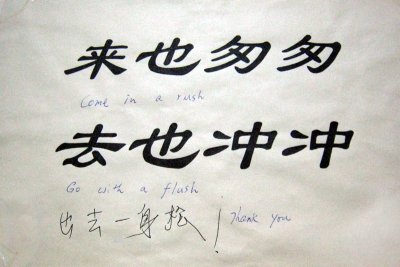 来也匆匆
Come in a rush
去也冲冲
Go with a flush
出去一身松! Thank you